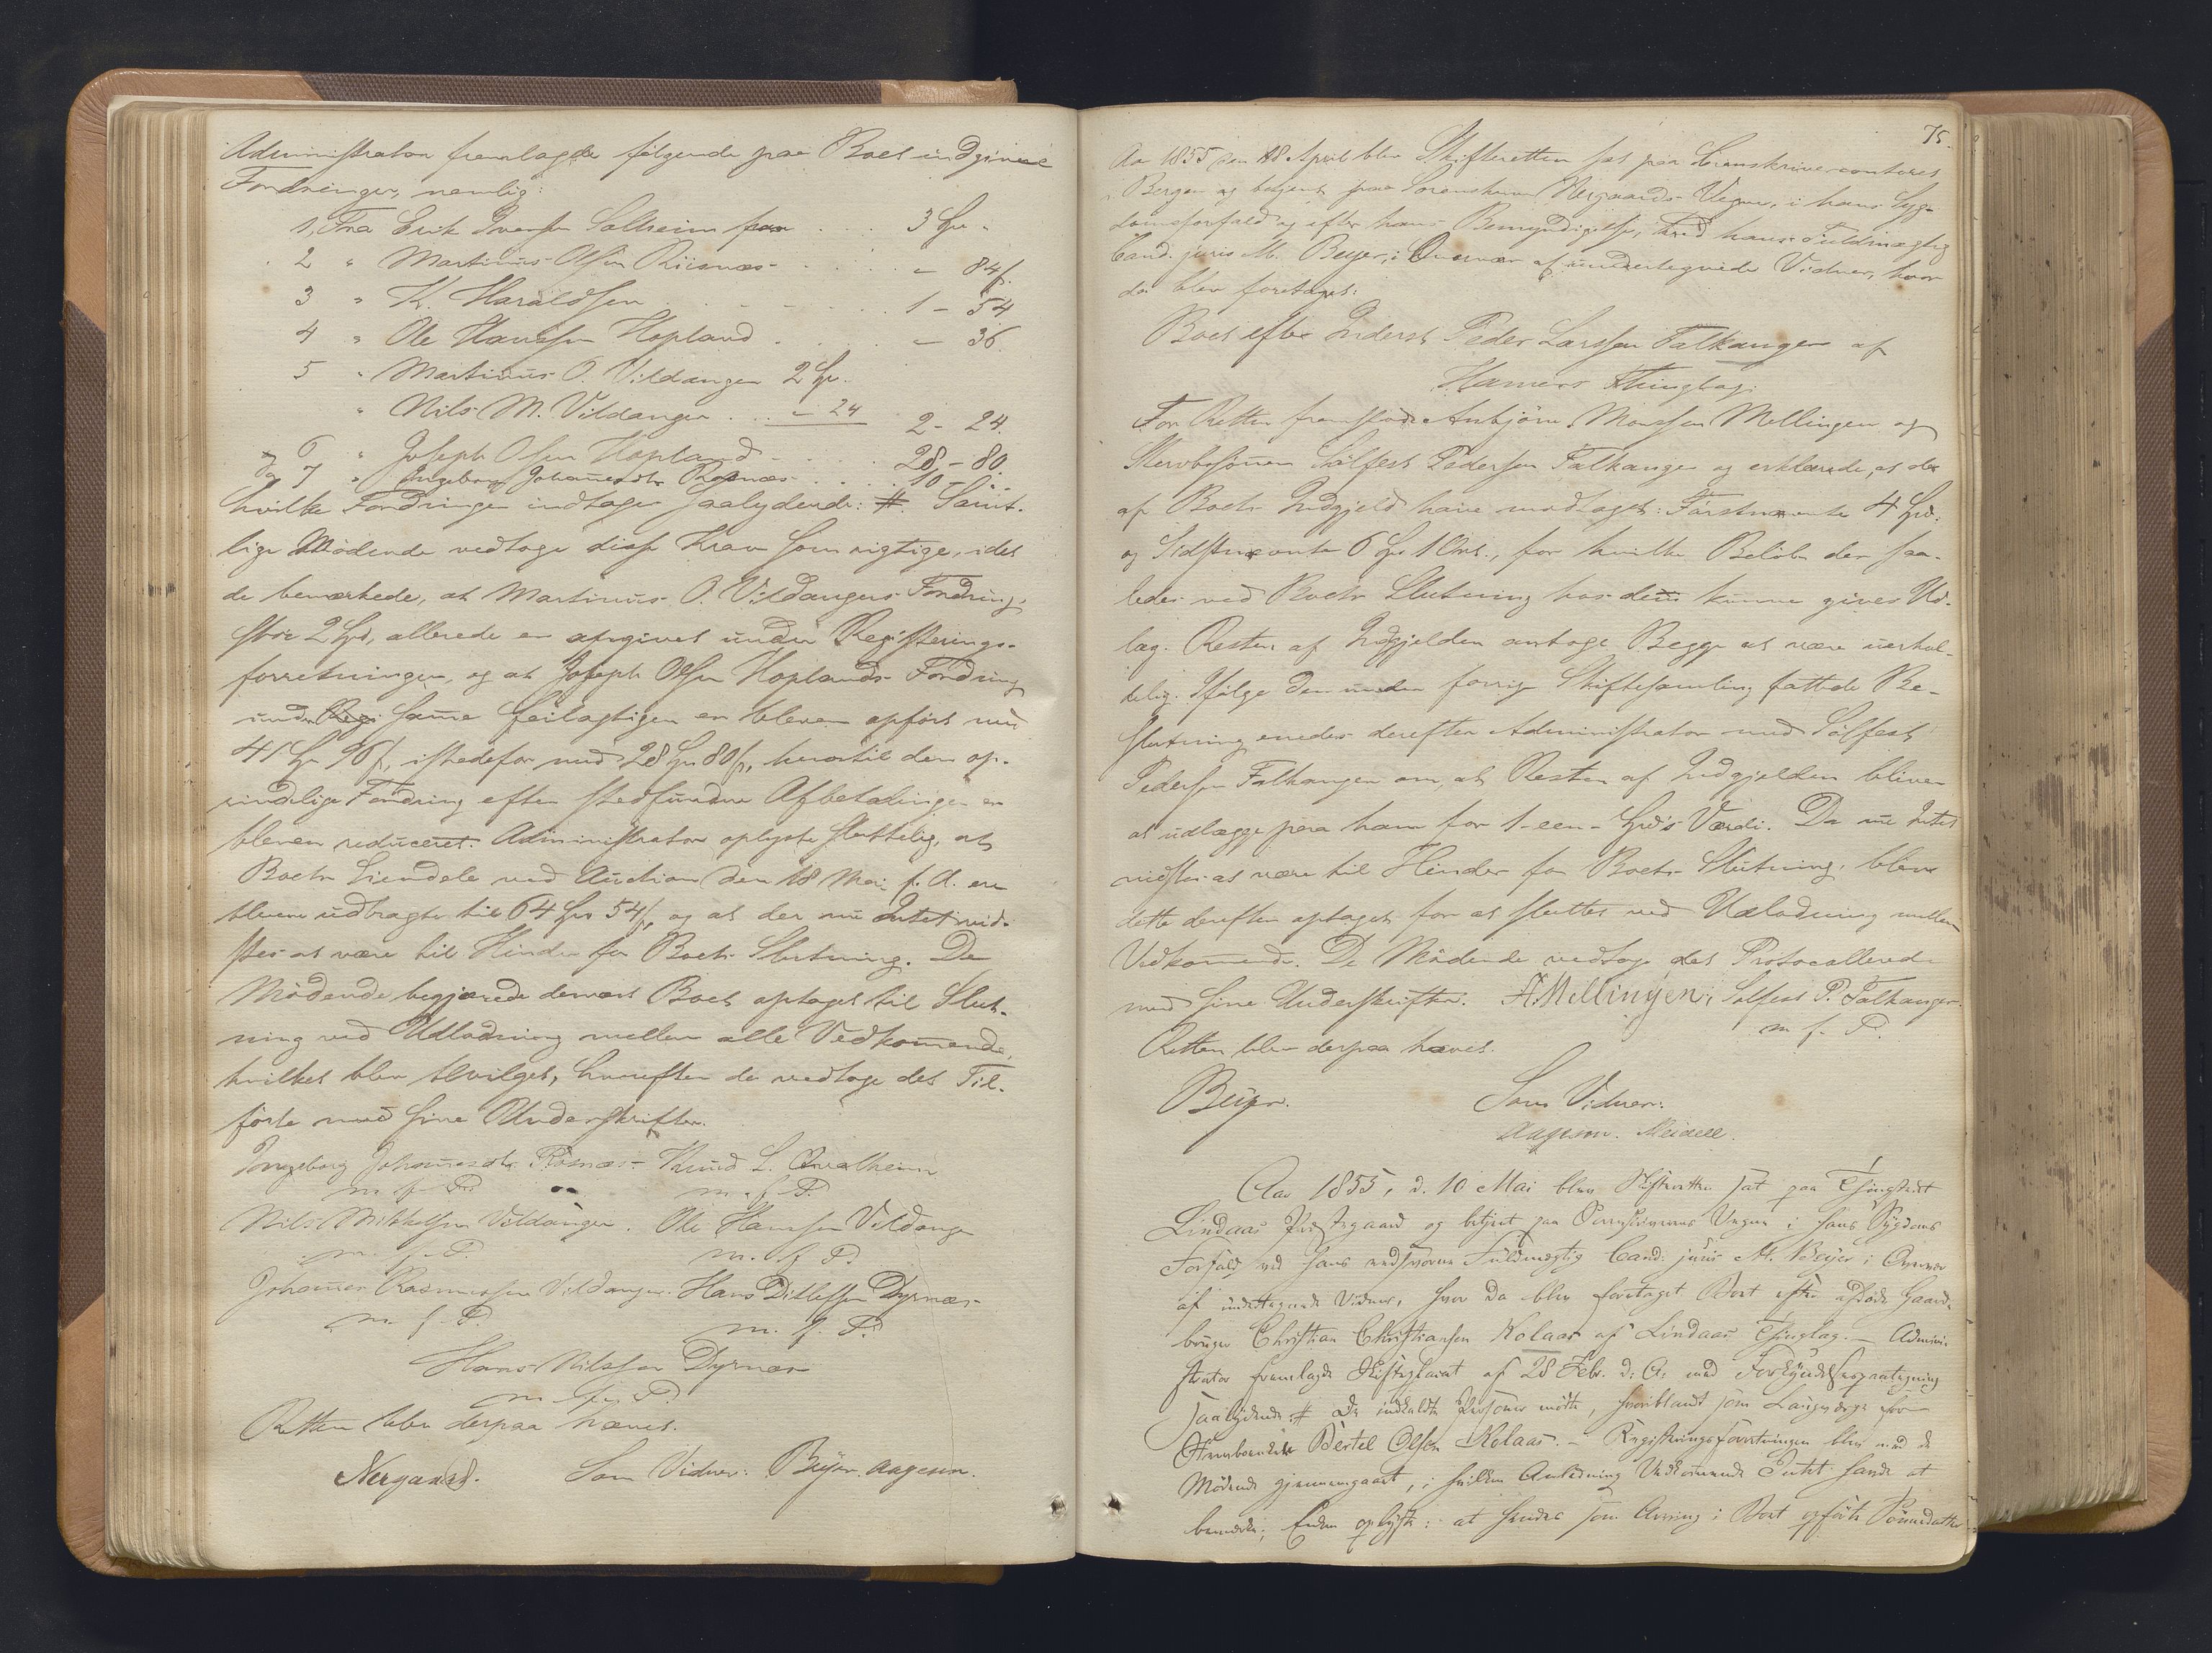 Administrator fremlagde følgende paa Boet indgivne
Fordringer, nemlig:
1, Fra Erik Iversen Solheim paa . . . 3 Spd. "
2 " Martinus Olsen Riisnæs . . . . " – 84 ß.
3 " K. Haraldsen . . . . . 1 – 54
4 " Ole Hanssen Hopland . . . – 36.
5 " Martinus O. Vildanger 2 Spd.
" Nils M. Vildanger . . . – 24 2 – 24.
og 6 " Joseph Olsen Hopland . . . . 28, – 80.
og 7 " Ingeborg Johannesdtr. Risnæs . . . . 10 – "
hvilke Fordringer indtages saalydende: #. Samt-
lige Mødende vedtoge disse Krav som rigtige, idet
de bemærkede, at Martinus O. Vildangers Fordring,
stor 2 Spd, allerede er angivet under Registrerings-
forretningen, og at Joseph Olsen Hoplands Fordring
under Regi samme feilagtigen er bleven opført med
41 Spd 96 ß, istedetfor med 28 Spd 80 ß, hvortil den op-
rindelige Fordring efter stedfundne Afbetalinger er
bleven reduceret. Administrator oplyste sluttelig, at
Boets Eiendele ved Auction den 18 Mai f. A. ere
blevne udbragte til 64 Spd 54 ß, og at der nu Intet vid-
stes at være til Hinder for Boets Slutning. De
Mødende begjærede dernæst Boet optaget til Slut-
ning ved Udlodning mellem alle Vedkommende,
hvilket blev bevilget, hvorefter de vedtoge det Til-
førte med sine Underskrifter.
Ingeborg Johannesdtr. Risnæs – Knud L. Qvalheim
m. f. P. m. f. P.
Nils Mikkelsen Vildanger. Ole Hanssen Vildanger
m. f. P. m. f. P.
Johannes Rasmussen Vildanger. Hans Ditlefsen Dyrnæs
m. f. P. m. f. P.
Hans Nilssen Dyrnæs
m. f. P.
Retten blev derpaa hævet.
Nergaard. Som Vidner: Beyer. Aagesen.
75.
Aar 1855 den 18 April blev Skifteretten sat paa Sorenskrivercontoret
i Bergen og betjent paa Sorenskriver Nergaards Vegne, i hans Syg-
domsforfald og efter hans Bemyndigelse, ved hans Fuldmægtig
Cand. juris M. Beyer, i Overvær af undertegnede Vidner, hvor
da blev foretaget:
Boet efter Inderst Peder Larssen Falkanger af
Hammers Thinglag.
For Retten fremstode Anbjørn Monssen Mellingen og
Stervbosønnen Sølfest Pedersen Falkanger og erklærede, at de
af Boets Indgjeld have modtaget: Førstnævnte 4 Spd.
og Sidstnævnte 6 Spd 1 Ort., for hvilke Beløb der saa-
ledes ved Boets Slutning hos dem kunne gives Ud-
læg. Resten af Indgjelden antoge Begge at være uerhol-
delig. Ifølge den under forrige Skiftesamling fattede Be-
slutning enedes derefter Administrator med Sølfest
Pedersen Falkanger om, at Resten af Indgjelden bliver
at udlægge paa ham for 1 – een – Spd's Værdi. Da nu Intet
vidstes at være til Hinder for Boets Slutning, blev
dette derefter optaget for at sluttes ved Udlodning mellem
Vedkommende. De Mødende vedtoge det Protocollerede
med sine Underskrifter. A. Mellingen, Sølfest P. Falkanger.
m. f. P.
Retten blev derpaa hævet.
Beyer. Som Vidner:
Aagesen. Meidell.
Aar 1855, d. 10 Mai blev Skifteretten sat paa Thingstedet
Lindaas Præstegaard og betjent paa Sorenskriverens Vegne i hans Sygdoms
Forfald ved hans edsvorne Fuldmægtig Cand: juris M. Beyer i Overvær
af undertegnede Vidner, hvor da blev foretaget Boet efter afdøde Gaard-
bruger Christian Christiansen Kolaas af Lindaas Thinglag. – Admini-
strator fremlagde Skifteplacat af 28 Febr. d. A. med Forkyndelsespaategning
saalydende: # De indkaldte Personer mødte, hvoriblandt som Laugværge for
Stervboenken Bertel Olsen Kolaas. – Registreringsforretningen blev med de
Mødende gjennemgaaet, i hvilken Anledning Vedkommende Intet havde at
bemærke; Enken oplyste: at hendes som Arving i Boet opførte Sønnedatter